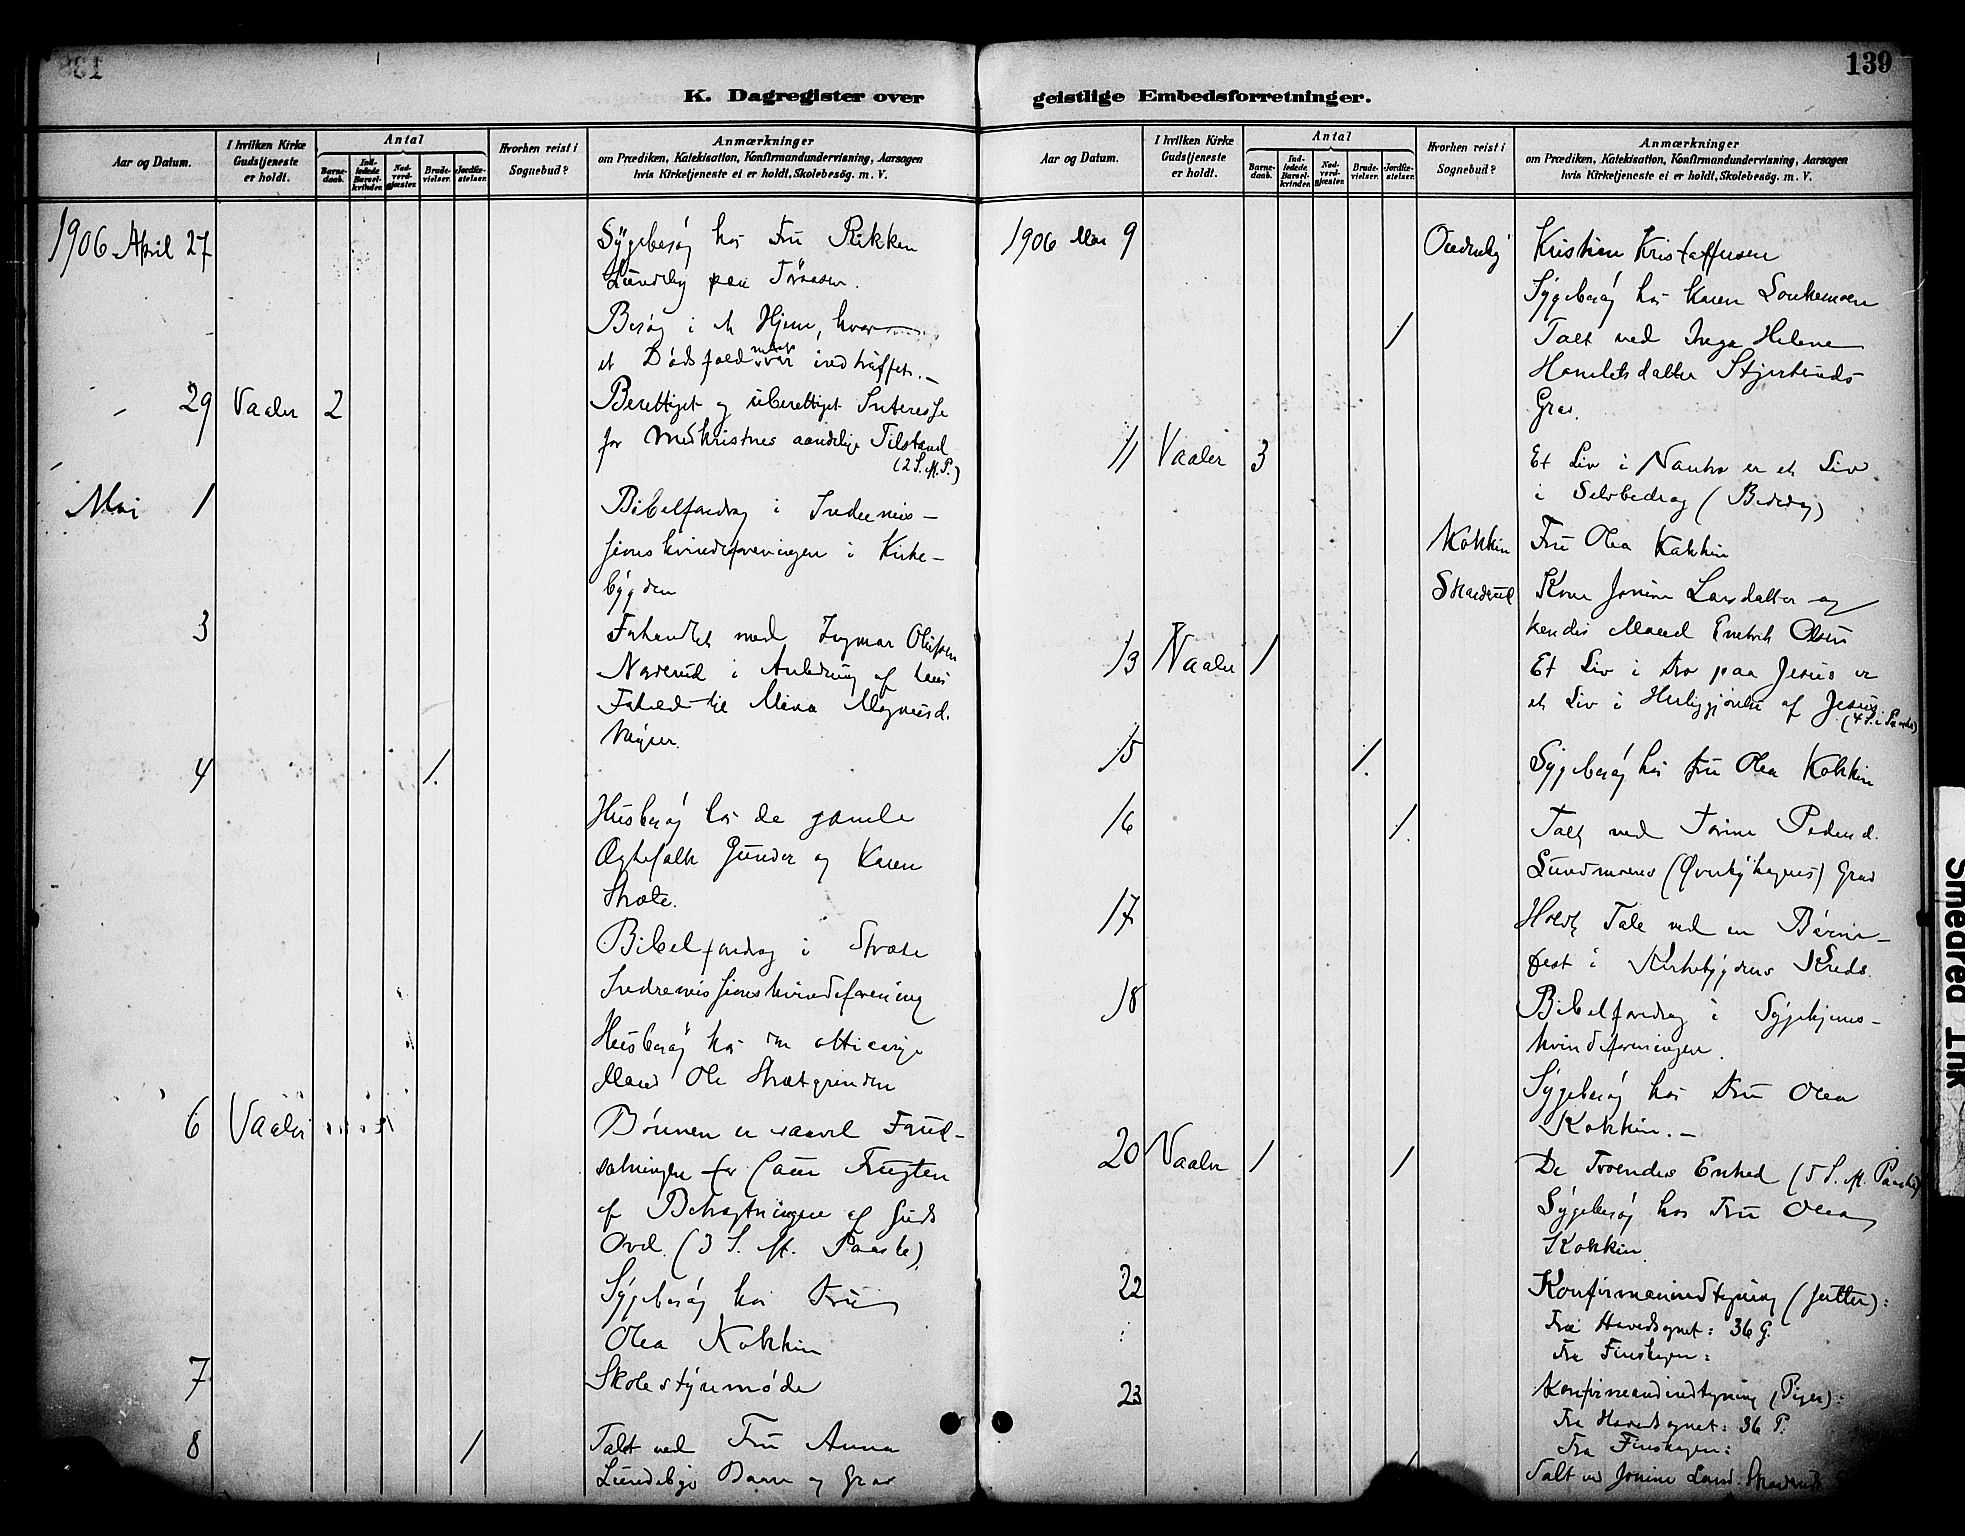 138
K. Dagregister over
Aar og Datum.
I hvilken Kirke Gudstjeneste er holdt.
Antal
Barnedaab.
Indledede Barselkvinder.
Nadverdgjæster.
Brudevielser.
Jordfæstelser.
Hvorhen reist i Sognebud?
Anmærkninger
om Prædiken, Katekisation, Konfirmandundervisning, Aarsagen
hvis Kirketjeneste ei er holdt, Skolebesög. m. V.
1906 April 27
Sygebesøg hos Fru Rikken
Lundeby paa
Besøg i et Hjem, hvor
et Dødsfald var indtruffet.
29 Vaaler 2
Berettiget og uberettiget Interesse
for Medkristnes aandelige Tilstand
(2 S. ef. P.)
Mai 1
Bibelforedrag i Indremis-
sionskvindeforeningen i Kirke-
bygden
3
Forhandlet med Ingmar Olufsen
Naverud i Anledning af hans
Forhold til Mina Magnusd.
4 1.
Husbesøg hos de gamle
Ægtefolk Gunder og Karen
Stræte.
Bibelforedrag i Stræte
Indremissionskvindeforening
Husbesøg hos den ottiaarige
Mand Ole Strætgrinden
6 Vaaler
Bønnen er saavel Forud-
sætningen for som Frugten
af Betragtningen af Guds
Ord. (3 S. ef. Paaske)
Sygebesøg hos Fru
Olea Kokkin
7
Skolestyremøde
8 1
Talt ved Fru Anna
Lundebys Baare og Grav
139
geistlige Embedsforretninger.
Aar og Datum.
I hvilken Kirke Gudstjeneste er holdt.
Antal
Barnedaab.
Indledede Barselkvinder.
Nadverdgjæster.
Brudevielser.
Jordfæstelser.
Hvorhen reist i Sognebud?
Anmærkninger
om Prædiken, Katekisation, Konfirmandundervisning, Aarsagen
hvis Kirketjeneste ei er holdt, Skolebesög. m. V.
1906 Mai 9
Kristian Kristoffersen
Sygebesøg hos Karen
1
Talt ved Inga Helene
Grav.
11 Vaaler 3
Et Liv i Vantro er et Liv
i Selvbedrag (Bededag)
Kokkin Fru Olea Kokkin
Skaderud Kone Jonine Larsdatter og
hendes Mand Olsen
13 Vaaler 1
Et Liv i Tro paa Jesus er
et Liv i Herliggjørelse af Jesus
15 1.
Sygebesøg hos Fru Olea Kokkin
16 1.
Talt ved Pedersd.
Grav
17
Holdt Tale ved en Børne-
fest i Kirkebygdens Kreds.
18
Bibelforedrag i Sygehjems-
kvindeforeningen.
Sygebesøg hos Fru Olea
Kokkin. -
20 Vaaler 1 1
De Troendes Enhed (5 S. ef. Paaske)
Sygebesøg hos Fru Olea
Kokkin
22
Konfirmandindtegning (Gutter):
Fra Hovedsognet: 36 G.
Fra Finskogen:
23
Konfirmandindtegning (Piger):
Fra Hovedsognet: 36 P.
Fra Finskogen:
Talt ved Jonine Larsd. Skaderuds
Smeared Ink